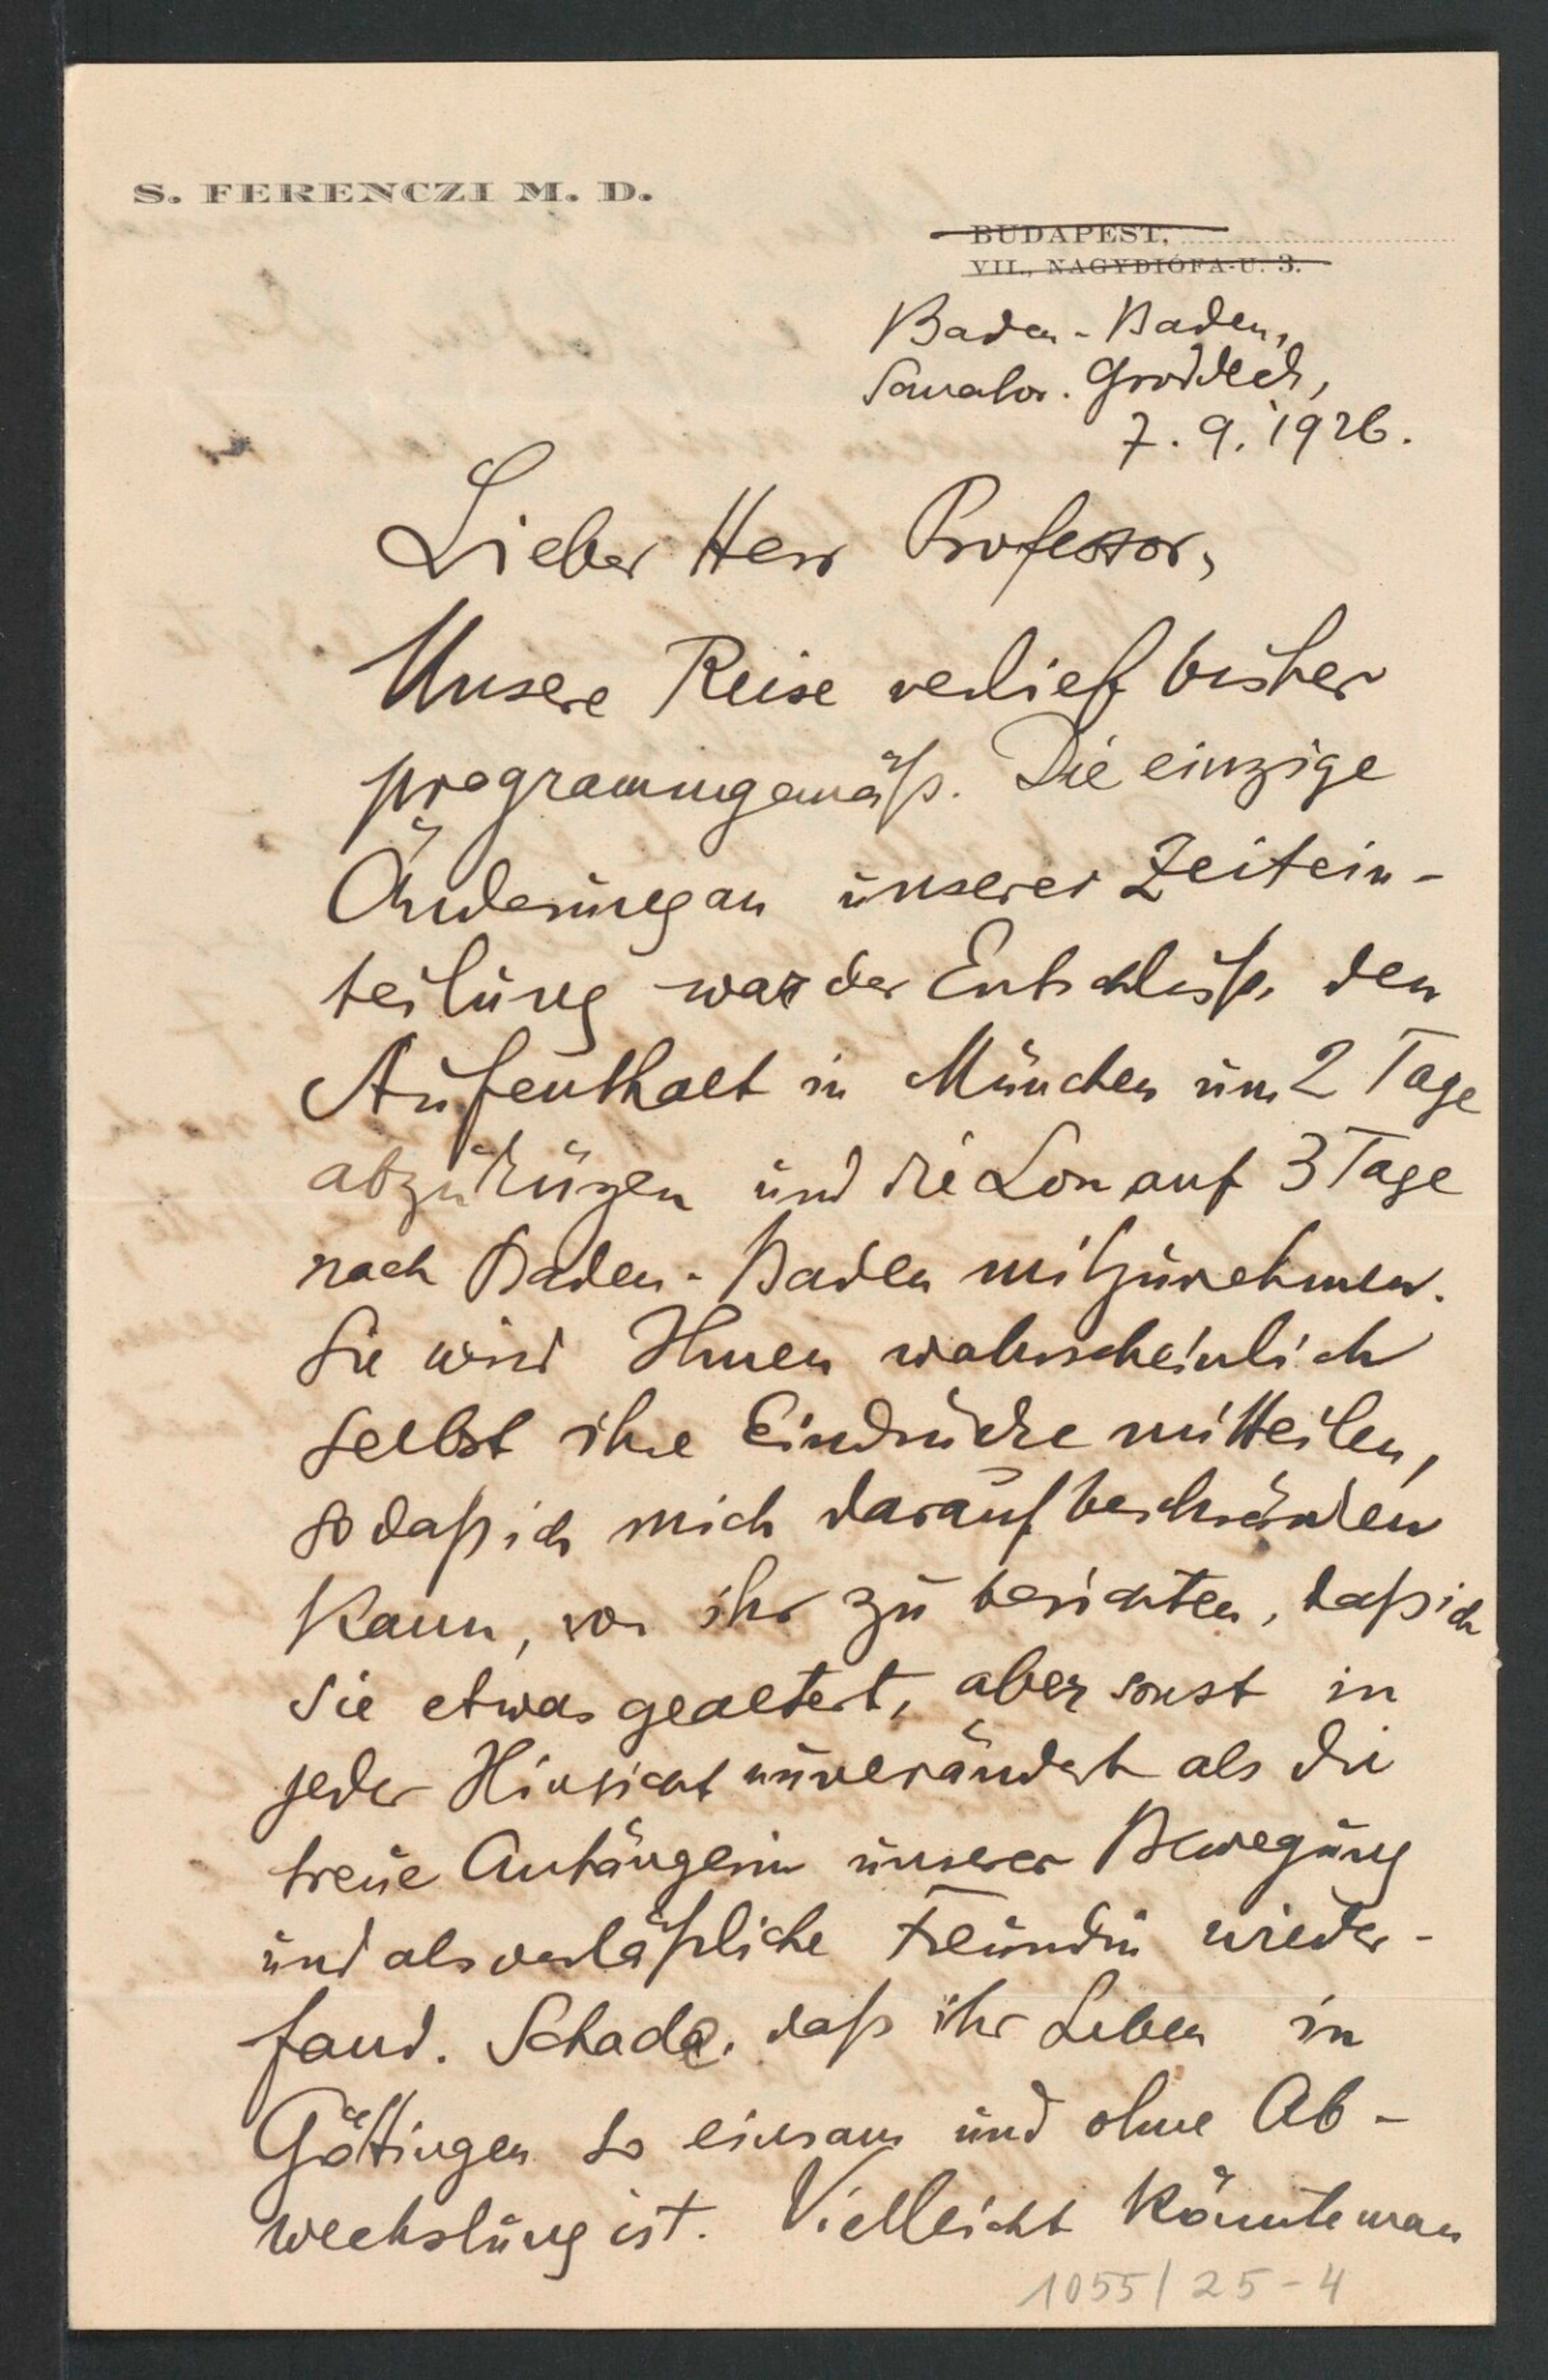 S. FERENCZI M. D.
BUDAPEST,
VII., NAGYDIÓFA-U. 3.
Baden-Baden,
Sanator. Groddeck,
7. 9. 1926.
Lieber Herr Professor,
Unsere Reise verlief bisher
programmgemäß. Die einzige
Änderung an unserer Zeitein-
teilung war der Entschluß, den
Aufenthalt in München um 2 Tage
abzukürzen und die Lou auf 3 Tage
nach Baden-Baden mitzunehmen.
Sie wird Ihnen wahrscheinlich
selbst ihre Eindrücke mitteilen,
so daß ich mich darauf beschränken
kann, von ihr zu berichten, daß ich
sie etwas gealtert, aber sonst in
jeder Hinsicht unverändert als die
treue Anhängerin unserer Bewegung
und als verläßliche Freundin wieder-
fand. Schade, daß ihr Leben in
Göttingen so einsam und ohne Ab-
wechslung ist. Vielleicht könnte man
1055/25-4